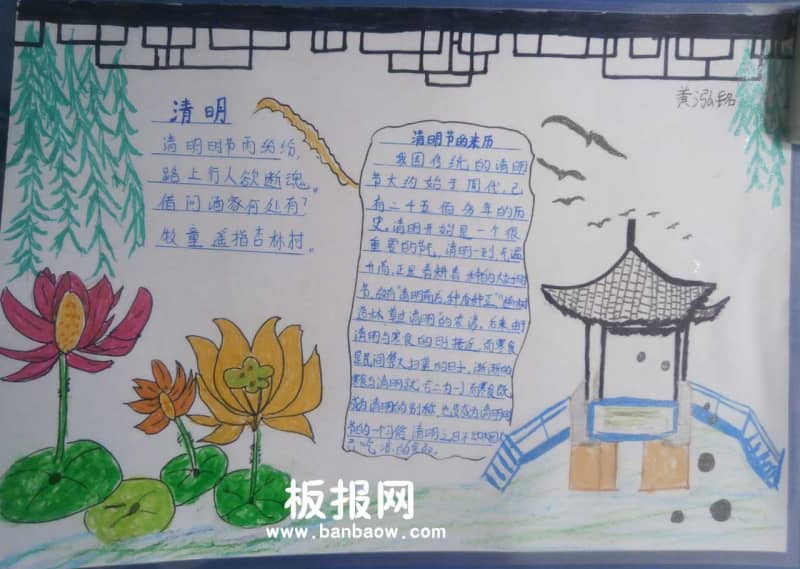 黄泓铭
清明
清明时节雨纷纷，
路上行人欲断魂。
借问酒家何处有？
牧童遥指吉林村。
清明节的来历
我国传统的清明
节大约始于周代，已
有二千五佰多年的历
史。清明开始是一个很
重要的节气，清明一到，气温
升高，正是春耕春种的大好时
节，故有"清明前后，种瓜种豆"
造林，莫过清明"的农谚。后来，由于
清明与寒食的日子接近，而寒食
是民间禁火扫墓的日子，渐渐的
寒食与清明就合二为一了，而寒食既
为清明的别称，也变成为清明时
节的一个习俗，清明之日不动烟火
只吃凉的食品。
板报网
www.banbaow.com